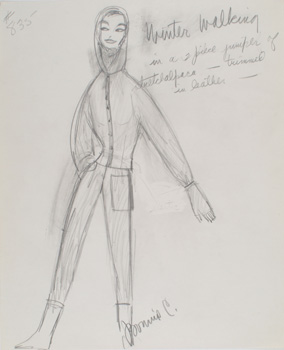 835
Winter Walking
in a 2 piece jumper of
alpaca — trimmed
in leather —
Bonnie C.